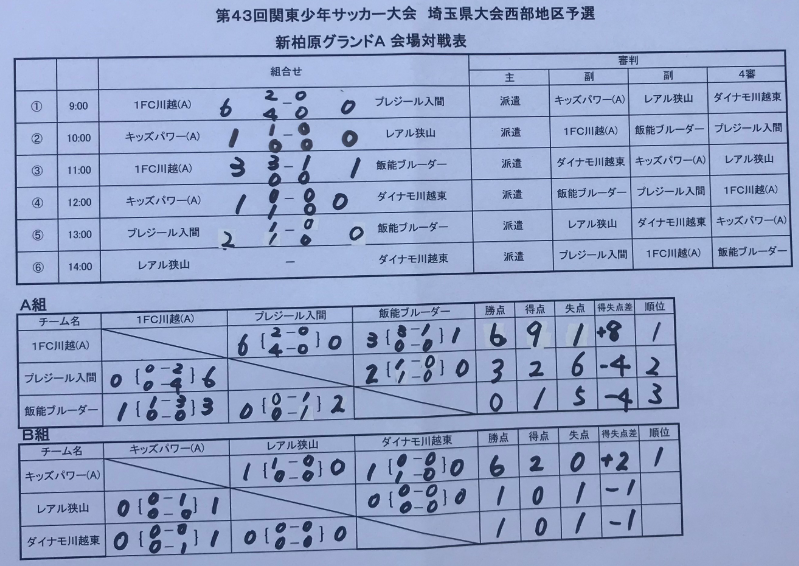 第43回関東少年サッカー大会 埼玉県大会西部地区予選
新柏原グランドA 会場対戦表
組合せ 審判
主 副 副 4審
① 9:00 1FC川越(A) 6 2-0 4-0 0 プレジール入間 派遣 キッズパワー(A) レアル狭山 ダイナモ川越東
② 10:00 キッズパワー(A) 1 1-0 0-0 0 レアル狭山 派遣 1FC川越(A) 飯能ブルーダー プレジール入間
③ 11:00 1FC川越(A) 3 3-1 0-0 1 飯能ブルーダー 派遣 ダイナモ川越東 キッズパワー(A) レアル狭山
④ 12:00 キッズパワー(A) 1 0-0 1-0 0 ダイナモ川越東 派遣 飯能ブルーダー プレジール入間 1FC川越(A)
⑤ 13:00 プレジール入間 2 1-0 1-0 0 飯能ブルーダー 派遣 レアル狭山 ダイナモ川越東 キッズパワー(A)
⑥ 14:00 レアル狭山 - ダイナモ川越東 派遣 プレジール入間 1FC川越(A) 飯能ブルーダー
A組
チーム名 1FC川越(A) プレジール入間 飯能ブルーダー 勝点 得点 失点 得失点差 順位
1FC川越(A) 6 { 2-0 4-0 } 0 3 { 3-1 0-0 } 1 6 9 1 +8 1
プレジール入間 0 { 0-2 0-4 } 6 2 { 1-0 1-0 } 0 3 2 6 -4 2
飯能ブルーダー 1 { 1-3 0-0 } 3 0 { 0-1 0-1 } 2 0 1 5 -4 3
B組
チーム名 キッズパワー(A) レアル狭山 ダイナモ川越東 勝点 得点 失点 得失点差 順位
キッズパワー(A) 1 { 1-0 0-0 } 0 1 { 0-0 1-0 } 0 6 2 0 +2 1
レアル狭山 0 { 0-1 0-0 } 1 0 { 0-0 0-0 } 0 1 0 1 -1
ダイナモ川越東 0 { 0-0 0-1 } 1 0 { 0-0 0-0 } 0 1 0 1 -1